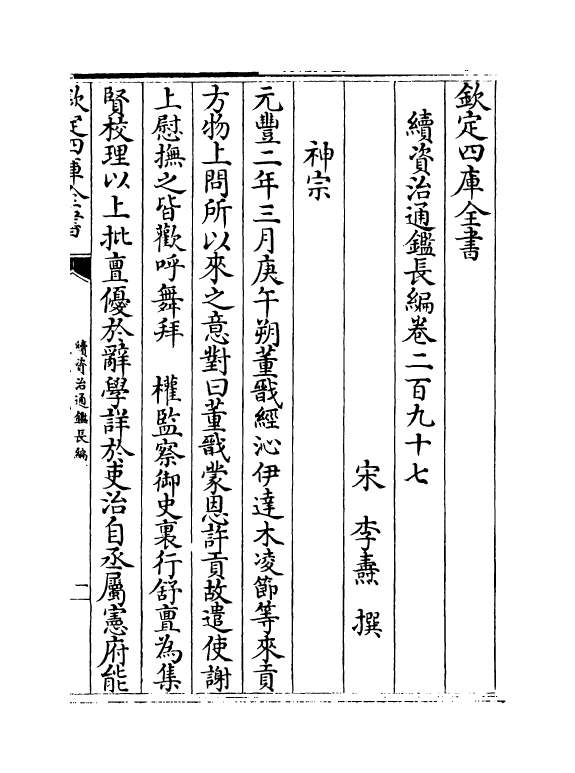 欽定四庫全書
續資治通鑑長編卷二百九十七
宋 李燾 撰
神宗
元豐二年三月庚午朔董戬經沁伊達木凌節等來貢
方物上問所以來之意對曰董戬蒙恩許貢故遣使謝
上慰撫之皆歡呼舞拜 權監察御史裏行舒亶為集
賢校理以上批亶優於辭學詳於吏治自丞屬憲府能
欽定四庫全書
續資治通鑑長編
一